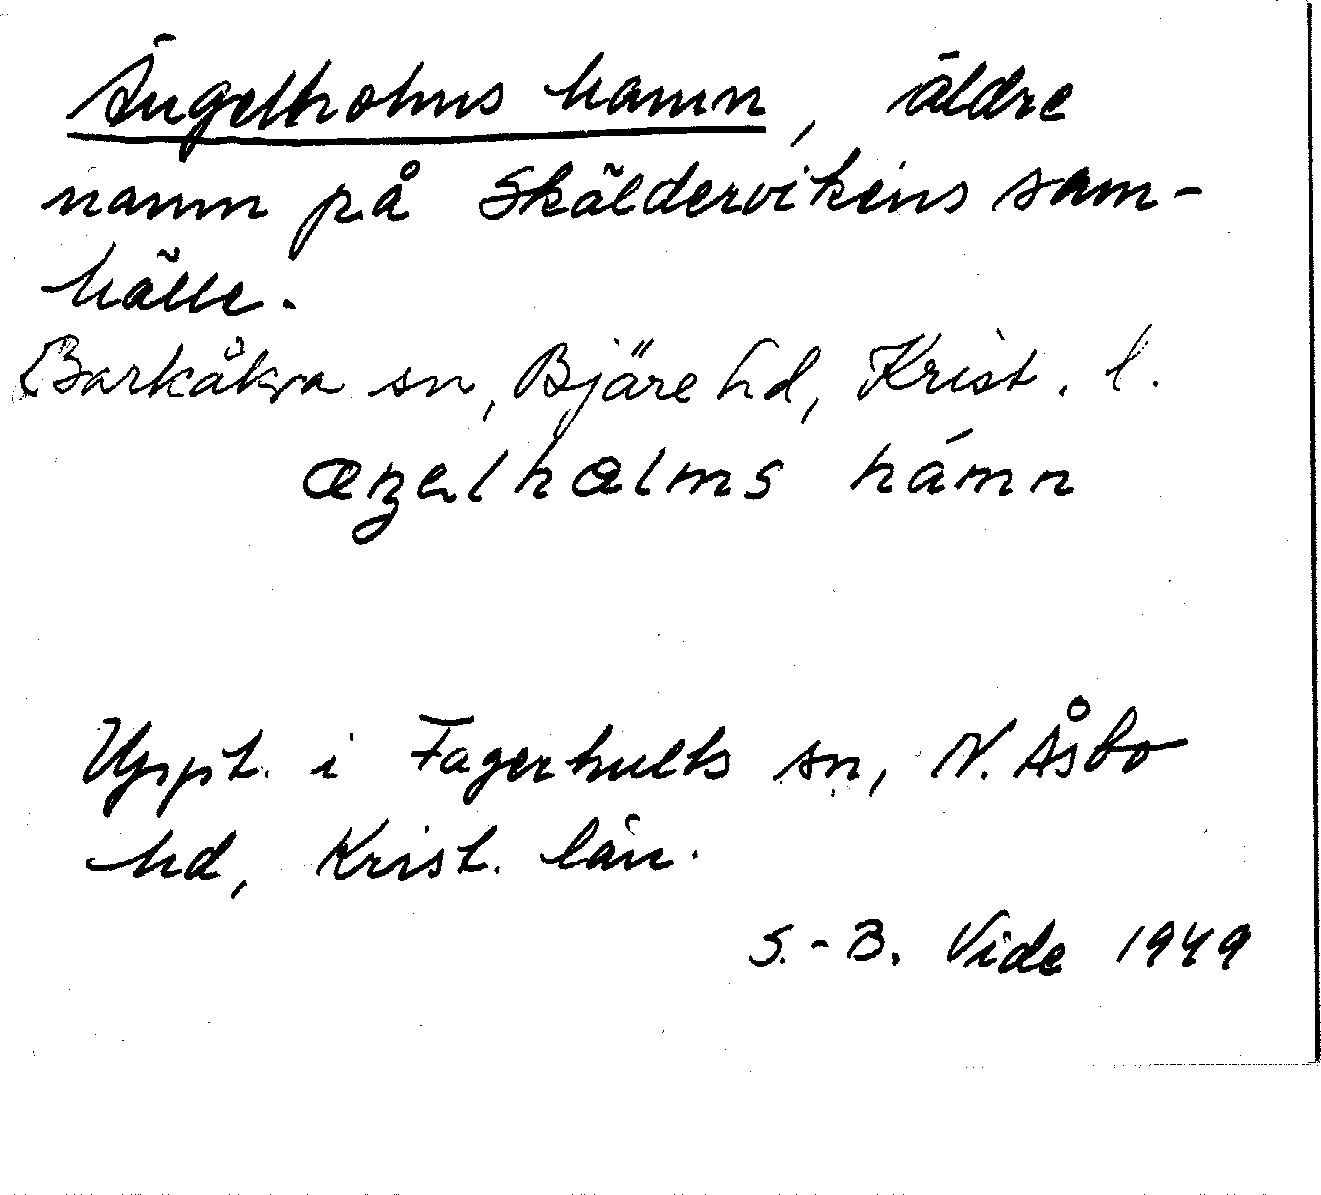 Ängelholms hamn, äldre
namn på Skäldervikens sam-
hälle.
Barkåkra sn, Bjäre hd, Krist. l.
hámn
Uppt. i Fagerhults sn, N. Åsbo
hd, Krist. län.
S.-B. Vide 1949